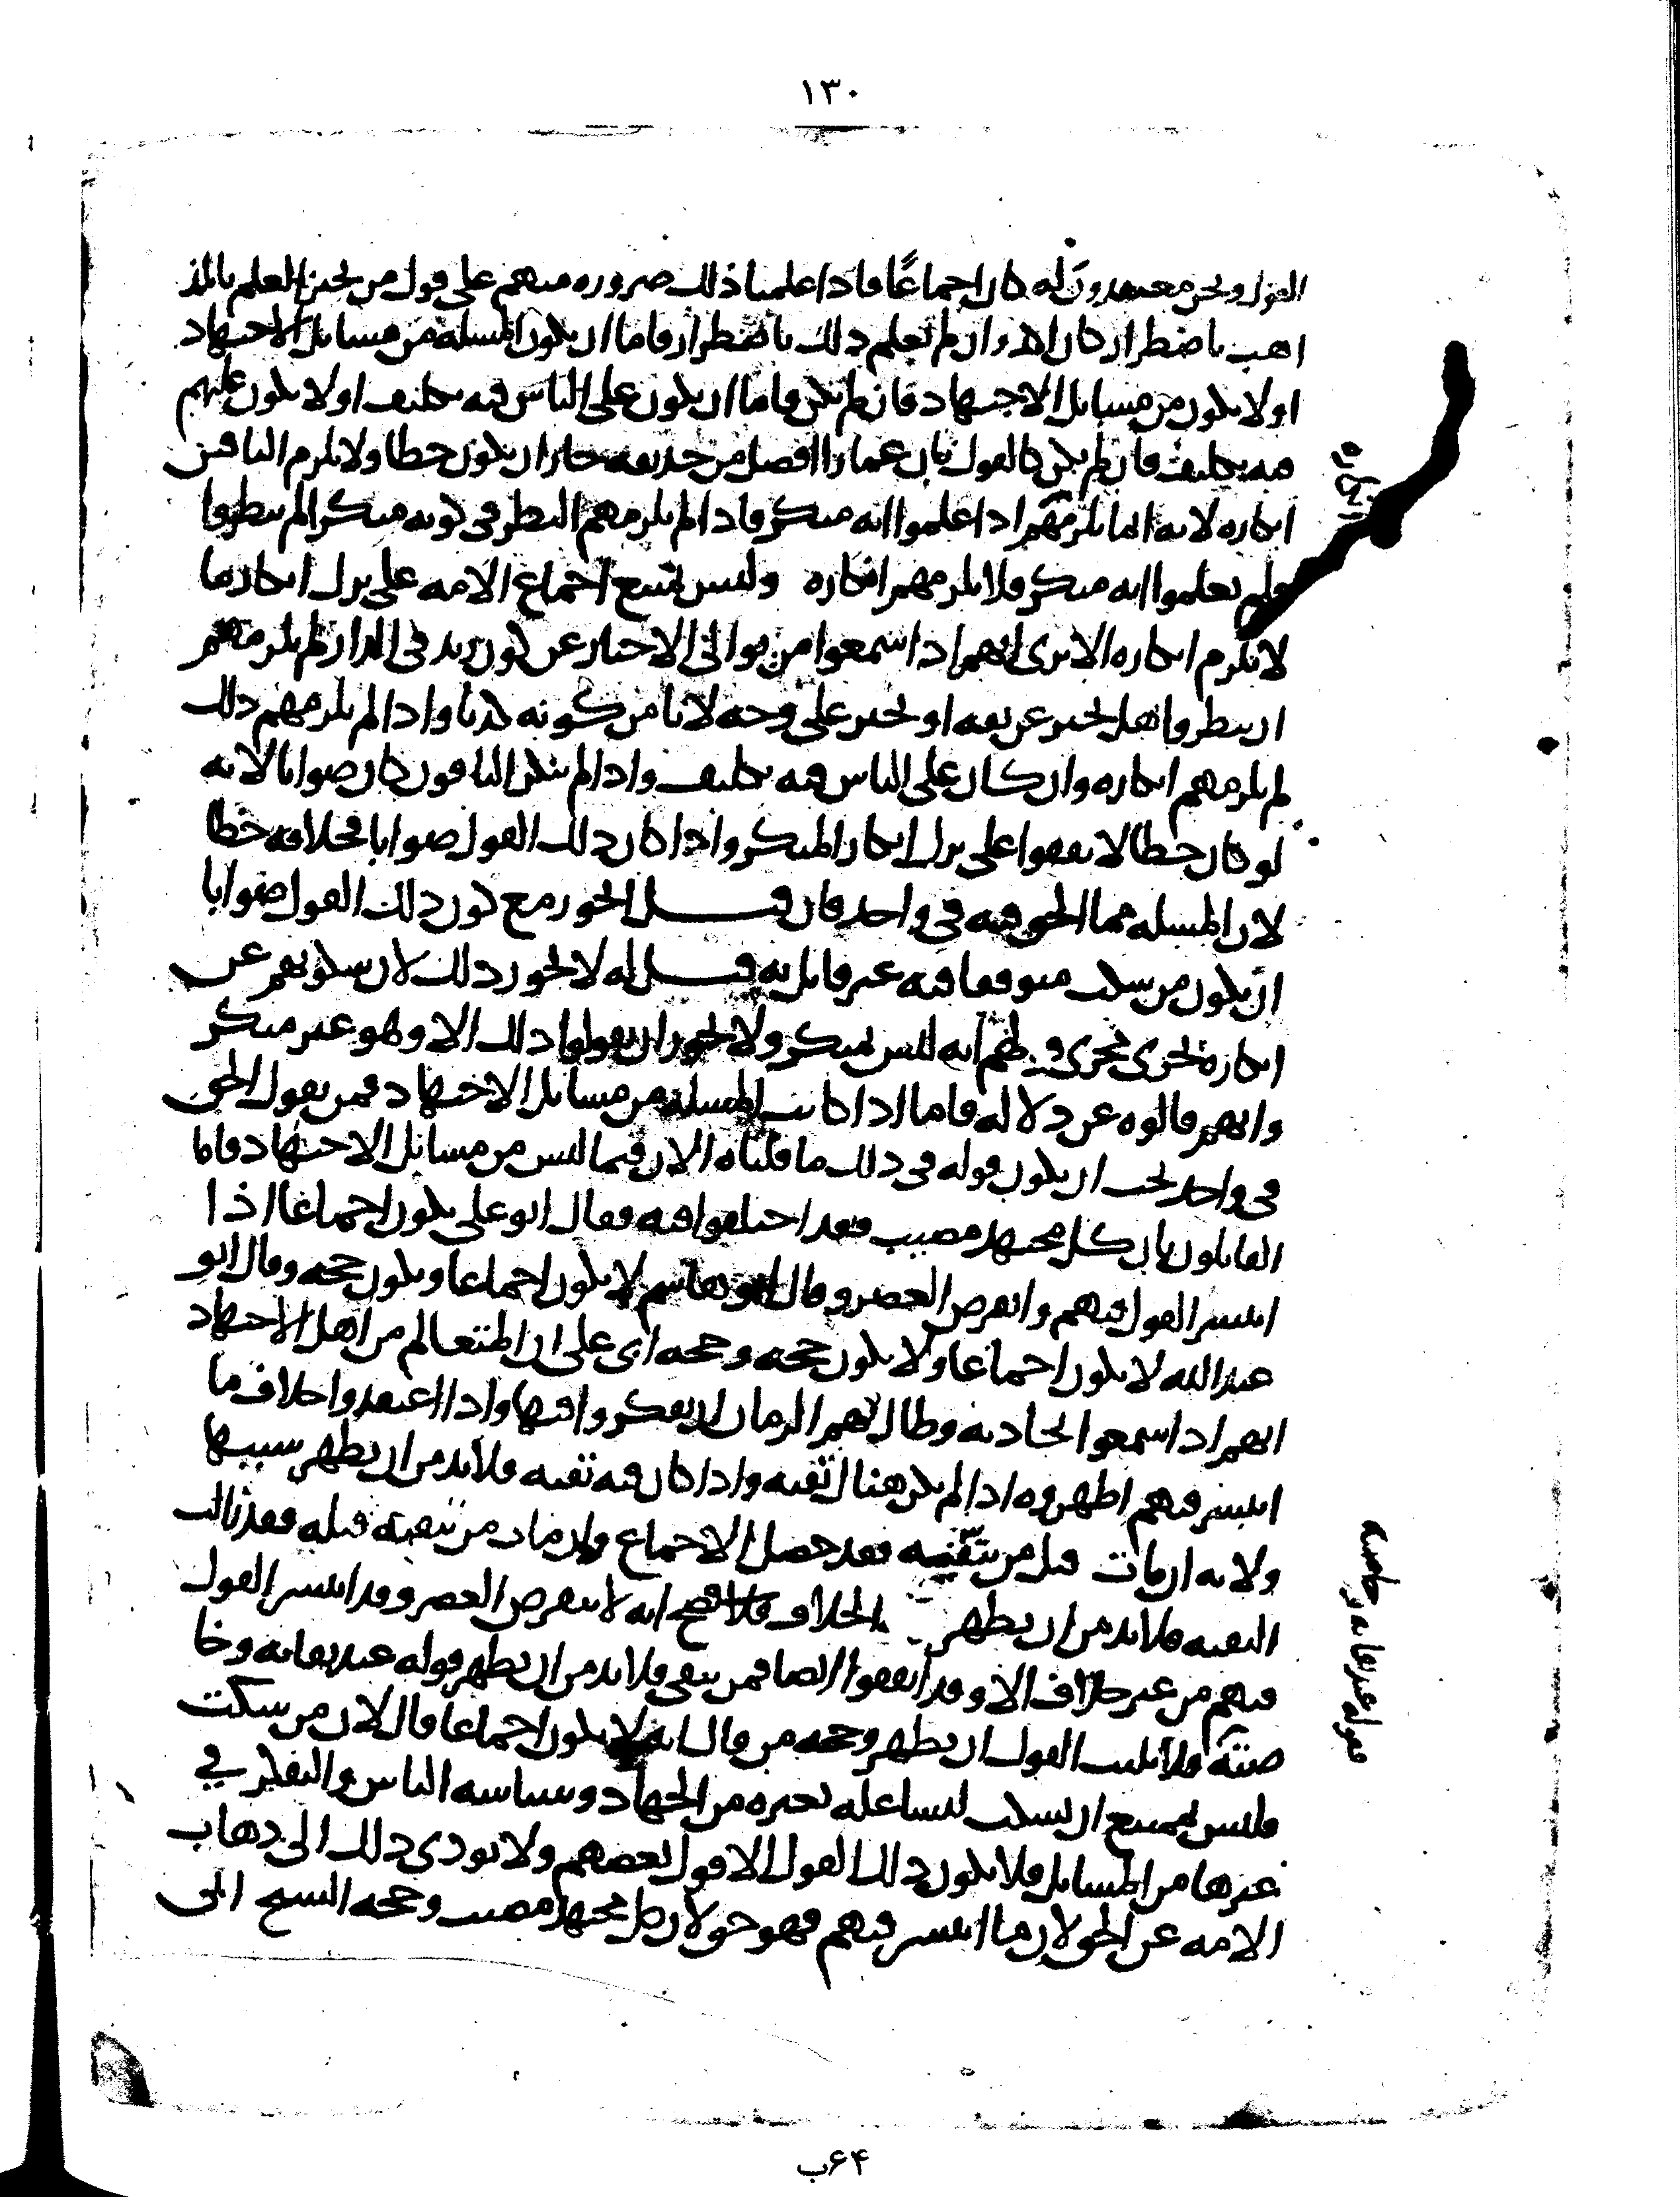 ١٣٠
القول ونحن معتقدون له كان اجماعًا فاذا علمنا ذلك ضروره منهم على قول من يجيز العلم بالمذ
اهب باضطرار كان وان لم نعلم ذلك باضطرار فاما ان يكون المسله من مسايل الاجتهاد
او لا يكون من مسايل الاجتهاد فان لم يكن فاما ان يكون على الناس فيه تكليف او لا يكون عليهم
فيه تكليف فان لم يكن كالقول بان عمارا افضل من حذيفه جاز ان يكون خطا ولا يلزم الباقين
انكاره لانه انما يلزمهم اذا علموا انه منكر فاذا لم يلزمهم النظر في كونه منكرا لم ينظروا
ولم يعلموا انه منكر فلا يلزمهم انكاره وليس يمتنع اجماع الامه على ترك انكار ما
لا يلزم انكاره الا ترى انهم اذا سمعوا من يوالي الاخبار عن كون زيد في الدار لم يلزمهم
ان ينظروا هل يخبر عن ثقه او يخبر على وجه لا يامن كونه كذبا واذا لم يلزمهم ذلك
لم يلزمهم انكاره وان كان على الناس فيه تكليف واذا لم ينكر الباقون كان صوابا لانه
لو كان خطا لاتفقوا على ترك انكار المنكر واذا كان ذلك القول صوابا فخلافه خطا
لان المسله مما الحق فيه في واحد فان قيل ايجوز مع كون ذلك القول صوابا
ان يكون من سكت متوقفا فيه غير قايل به قيل له لا يجوز ذلك لان سكوتهم عن
انكاره يجري مجرى قولهم انه ليس بمنكر ولا يجوز ان يقولوا ذلك الا وهو غير منكر
وانهم قالوه عن دلاله فاما اذا كانت المسله من مسايل الاجتهاد فمن يقول الحق
في واحد يجب ان يكون قوله في ذلك ما قلناه الان فيما ليس من مسايل الاجتهاد فاما
القايلون بان كل مجتهد مصيب فقد اختلفوا فيه فقال ابو علي يكون اجماعا اذا
انتشر القول فيهم وانقرض العصر وقال ابو هاشم لا يكون اجماعا ويكون حجه وقال ابو
عبد الله لا يكون اجماعا ولا يكون حجه وحجه ابي علي ان المتعالم من اهل الاجتهاد
انهم اذا سمعوا الحادثه وطال بهم الزمان ان يفكروا فيها واذا اعتقدوا خلاف ما
انتشر فيهم اظهروه اذا لم يكن هناك تقيه واذا كان فيه تقيه فلا بد من ان يظهر سببها
ولانه ان مات قبل من يتّقيه فقد حصل الاجماع وان مات من يتقيه قبله فقد زالت
التقيه فلا بد من ان يظهر الخلاف انه لا ينقرض العصر وقد انتشر القول
فيهم من غير خلاف الا وقد اتفقوا ايضا فمن يتقي فلا بد من ان يظهر قوله عند ثقاته وخا
صته فلا يلبث القول ان يظهر وحجه من قال انه لا يكون اجماعا قال لان من سكت
فليس يمتنع ان يسكت لتشاغله بغيره من الجهاد وسياسه الناس والتفكر في
غيرها من المسايل فلا يكون ذلك القول الا قول بعضهم ولا يودي ذلك الى ذهاب
الامه عن الحق لان ما انتشر فيهم فهو حق لان كل مجتهد مصيب وحجه الشيخ ابي
انكاره
٦۴ب